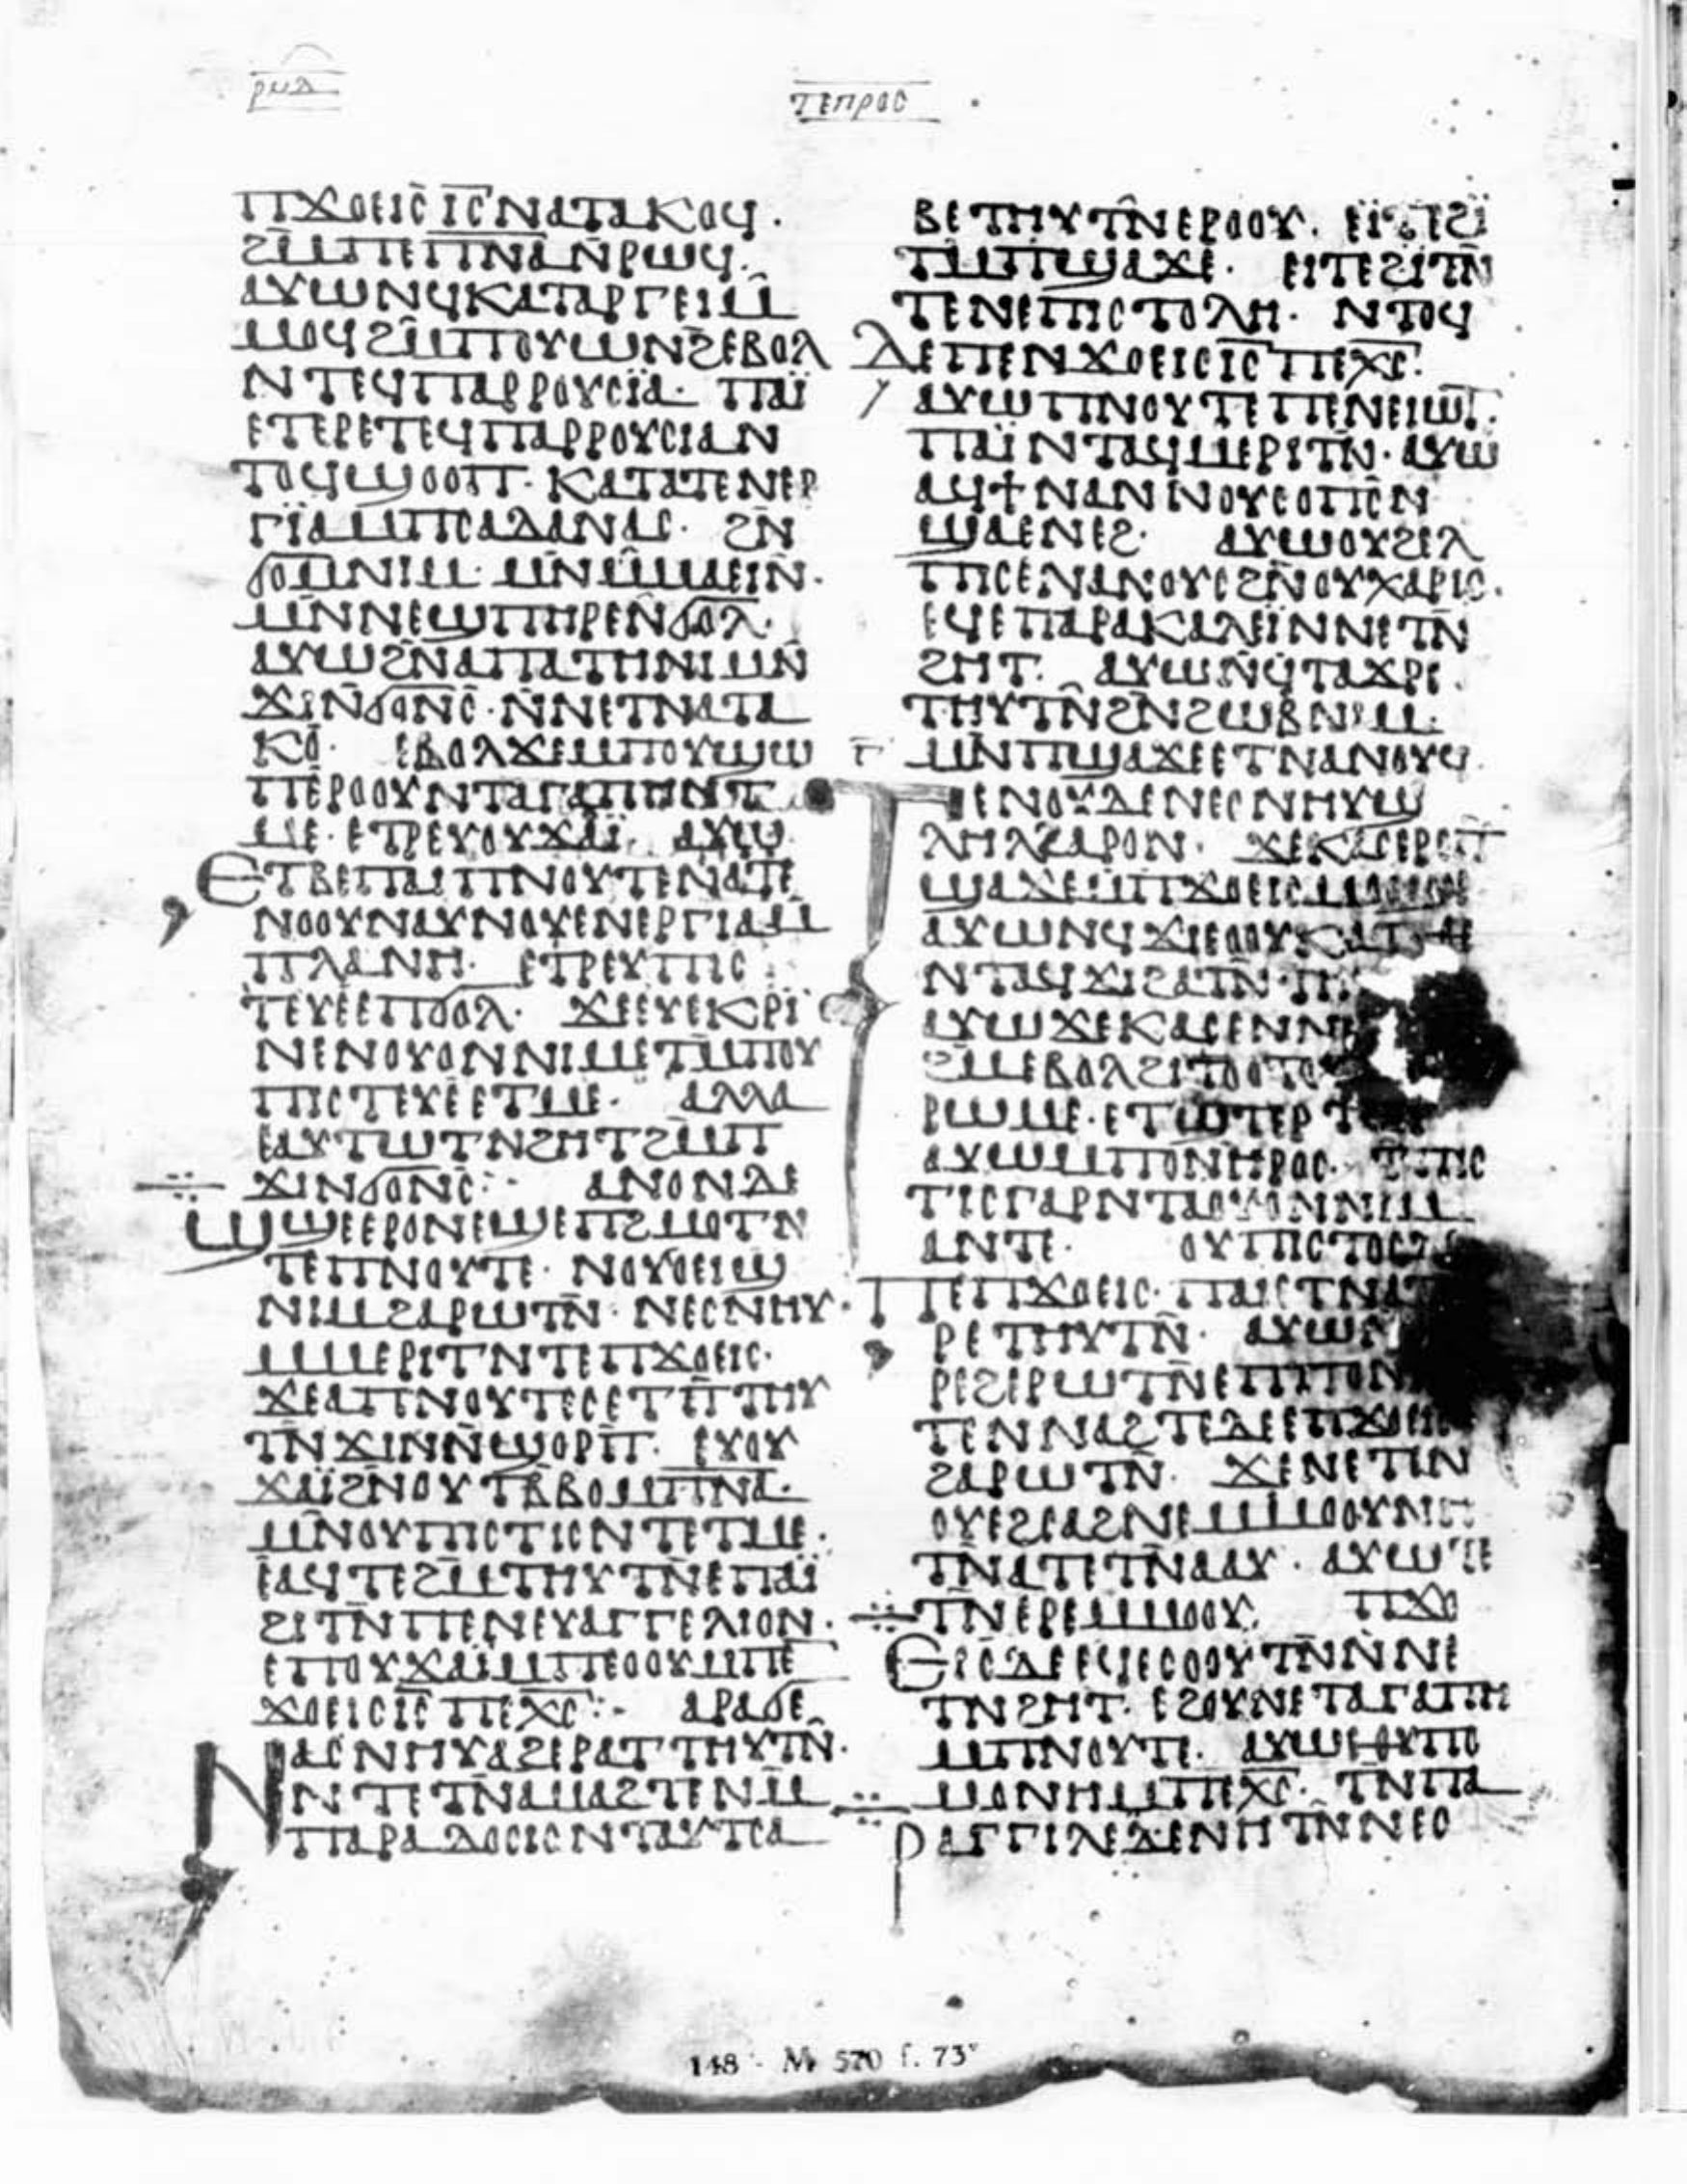 ⲣⲙⲇ
ⲧⲉⲡⲣⲟⲥ
ⲡϫⲟⲉⲓⲥ ⲓ̅ⲥ̅ ⲛⲁⲧⲁⲕⲟϥ.
ϩⲙ̄ⲡⲉⲡ̅ⲛ̅ⲁ̅ ⲛ̄ⲣⲱϥ.
ⲁⲩⲱⲛϥⲕⲁⲧⲁⲣⲅⲉⲓⲙ̄
ⲙⲟϥϩⲙ̄ⲡⲟⲩⲱⲛϩⲉⲃⲟⲗ
ⲛⲧⲉϥⲡⲁⲣⲣⲟⲩⲥⲓ̈ⲁ· ⲡⲁⲓ̈
ⲉⲧⲉⲣⲉⲧⲉϥⲡⲁⲣⲣⲟⲩⲥⲓⲁⲛ
ⲧⲟϥϣⲟⲟⲡ· ⲕⲁⲧⲁⲧⲉⲛⲉⲣ
ⲅⲓ̈ⲁⲙⲡⲥⲁⲇⲁⲛⲁⲥ· ϩⲛ̄
ϭⲟⲙⲛⲓⲙ· ⲙⲛⲙ̄ⲙⲁⲉⲓⲛ·
ⲙⲛ̄ⲛⲉϣⲡⲏⲣⲉⲛ̄ϭⲟⲗ·
ⲁⲩⲱϩⲛ̄ⲁⲡⲁⲧⲏⲛⲓⲙⲛ̄
ϫⲓⲛϭⲟⲛⲥ̄·ⲛ̄ⲛⲉⲧⲛⲁⲧⲁ
ⲕⲟ̄· ⲉⲃⲟⲗϫⲉⲙⲡⲟⲩϣⲱ
ⲡⲉⲣⲟⲟⲩⲛⲧⲁⲅⲁⲡⲏⲛⲧ
ⲙⲉ·ⲉⲧⲣⲉⲩⲟⲩϫⲁⲓ̈. ⲁⲩⲱ
ⲉⲧⲃⲉⲡⲁⲓⲡⲛⲟⲩⲧⲉⲛⲁⲧⲉ
ⲛⲟⲟⲩⲛⲁⲩⲛⲟⲩⲉⲛⲉⲣⲅⲓⲁⲙ̄
ⲡⲗⲁⲛⲏ· ⲉⲧⲣⲉⲩⲡⲓⲥ
ⲧⲉⲩⲉⲉⲡϭⲟⲗ· ϫⲉⲉⲩⲉⲕⲣⲓ̈
ⲛⲉⲛⲟⲩⲟⲛⲛⲓⲙⲉⲧⲙ̄ⲡⲟⲩ
ⲡⲓⲥⲧⲉⲩⲉⲉⲧⲙⲉ· ⲁⲗⲗⲁ
ⲉⲁⲩⲧⲱⲧⲛϩⲏⲧϩⲙ̄ⲡ
ϫⲓⲛϭⲟⲛⲥ̄:· ⲁⲛⲟⲛⲇⲉ
ϣϣⲉⲉⲣⲟⲛⲉϣⲉⲡϩⲙⲟⲧⲛ
ⲧⲉⲡⲛⲟⲩⲧⲉ· ⲛⲟⲩⲟⲉⲓϣ
ⲛⲓⲙϩⲁⲣⲱⲧⲛ̄· ⲛⲉⲥⲛⲏⲩ·
ⲙⲙⲉⲣⲓⲧⲛⲧⲉⲡϫⲟⲉⲓⲥ·
ϫⲉⲁⲡⲛⲟⲩⲧⲉⲥⲉⲧⲡ̄ⲧⲏⲩ
ⲧⲛ̄ϫⲓⲛⲛ̄ϣⲟⲣⲡ̄· ⲉⲩⲟⲩ
ϫⲁⲓ̈ϩⲛ̄ⲟⲩⲧⲃ̄ⲃⲟⲙⲡ̅ⲛ̅ⲁ̅·
ⲙⲛ̄ⲟⲩⲡⲓⲥⲧⲓⲥⲛⲧⲉⲧⲙⲉ·
ⲉⲁϥⲧⲉϩⲙ̄ⲧⲏⲩⲧⲛ̄ⲉⲡⲁⲓ̈
ϩⲓⲧⲛ̄ⲡⲉⲛⲉⲩⲁⲅⲅⲉⲗⲓⲟⲛ·
ⲉⲡⲟⲩϫⲁⲓ̈ⲙⲡⲉⲟⲟⲩⲙⲡⲉ̄
ϫⲟⲉⲓⲥⲓ̅ⲥ̅ ⲡⲉⲭ̅ⲥ̅:· ⲁⲣⲁϭⲉ
ⲛⲁⲥⲛⲏⲩⲁϩⲉⲣⲁⲧⲧⲏⲩⲧⲛ̄·
ⲛⲧⲉⲧⲛ̄ⲁⲙⲁϩⲧⲉⲛⲙ̄
ⲡⲁⲣⲁⲇⲟⲥⲓⲥⲛⲧⲁⲩⲧⲥⲁ
ⲃⲉⲧⲏⲩⲧⲛ̄ⲉⲣⲟⲟⲩ. ⲉⲓ̈ⲧⲉϩⲓ̈
ⲧⲙ̄ⲡϣⲁϫⲉ· ⲉⲓⲧⲉϩⲓⲧⲛ̄
ⲧⲉⲛⲉⲡⲓⲥⲧⲟⲗⲏ· ⲛⲧⲟϥ
ⲇⲉⲡⲉⲛϫⲟⲉⲓⲥⲓ̅ⲥ̅ ⲡⲉⲭ̅ⲥ̅.
ⲁⲩⲱⲡⲛⲟⲩⲧⲉⲡⲉⲛⲉⲓⲱⲧ̄.
ⲡⲁⲓ̈ⲛⲧⲁϥⲙⲉⲣⲓⲧⲛ̄·ⲁⲩⲱ
ⲁϥϯⲛⲁⲛⲛⲟⲩⲥⲟⲡⲥ̄ⲛ
ϣⲁⲉⲛⲉϩ· ⲁⲩⲱⲟⲩϩⲉⲗ
ⲡⲓⲥⲉⲛⲁⲛⲟⲩⲥϩⲛ̄ⲟⲩⲭⲁⲣⲓⲥ.
ⲉϥⲉⲡⲁⲣⲁⲕⲁⲗⲉⲓ̈ⲛⲛⲉⲧⲛ̄
ϩⲏⲧ. ⲁⲩⲱⲛ̄ϥⲧⲁϫⲣⲉ
ⲧⲏⲩⲧⲛ̄ϩⲛϩⲱⲃⲛⲓⲙ·
ⲙⲛⲡϣⲁϫⲉⲉⲧⲛⲁⲛⲟⲩϥ
ⲧⲉⲛⲟⲩⲇⲉⲛⲉⲥⲛⲏⲩϣ
ⲗⲏⲗϩⲁⲣⲟⲛ· ϫⲉⲕⲁⲥⲉⲣⲉⲡ
ϣⲁϫⲉⲙⲡϫⲟⲉⲓⲥ
ⲁⲩⲱⲛϥϫⲓⲉⲟⲟⲩⲕⲁⲧⲁ
ⲛⲧⲁϥϫⲓϩⲁⲧⲛ̄
ⲁⲩⲱϫⲉⲕⲁⲥⲉⲛⲛ
ϩⲙⲉⲃⲟⲗϩⲓⲧⲟⲟⲧⲟⲩ
ⲣⲱⲙⲉ·ⲉⲧ
ⲁⲩⲱⲙⲡⲟⲛⲏⲣⲟⲥ· ⲧⲡⲓⲥ
ⲧⲓⲥⲅⲁⲣⲛⲧⲁⲟⲩⲟⲛⲛⲓⲙ
ⲁⲛⲧⲉ· ⲟⲩⲡⲓⲥⲧⲟⲥ
ⲡⲉⲡϫⲟⲉⲓⲥ·ⲡⲁⲓⲉⲧⲛⲁⲧ
ⲣⲉⲧⲏⲩⲧⲛ̄· ⲁⲩⲱⲛ
ⲣⲉϩⲉⲣⲱⲧⲛ̄ⲉⲡⲡⲟⲛ
ⲧⲉⲛⲛⲁϩⲧⲉⲇⲉⲉⲡϫⲟⲉⲓⲥ
ϩⲁⲣⲱⲧⲛ̄· ϫⲉⲛⲉⲧⲛ
ⲟⲩⲉϩⲥⲁϩⲛⲉⲙⲙⲟⲟⲩⲛⲏ
ⲧⲛ̄ⲁⲧⲉⲧⲛ̄ⲁⲁⲩ· ⲁⲩⲱⲧⲉ
ⲧⲛ̄ⲉⲓⲣⲉⲙⲙⲟⲟⲩ. ⲡϫⲟ
ⲉⲓⲥⲇⲉⲉϥⲉⲥⲟⲟⲩⲧⲛ̄ⲛ̄ⲛⲉ
ⲧⲛϩⲏⲧ· ⲉϩⲟⲩⲛⲉⲧⲁⲅⲁⲡⲏ
ⲙⲡⲛⲟⲩⲧⲉ· ⲁⲩⲱⲑⲩⲡⲟ
ⲙⲟⲛⲏⲙⲡⲉⲭ̅ⲥ̅· ⲧⲛ̄ⲡⲁ
ⲣⲁⲅⲅⲓⲗⲉⲇⲉⲛⲏⲧⲛ̄ⲛⲉⲥ
148 - M 570 f. 73ᵛ